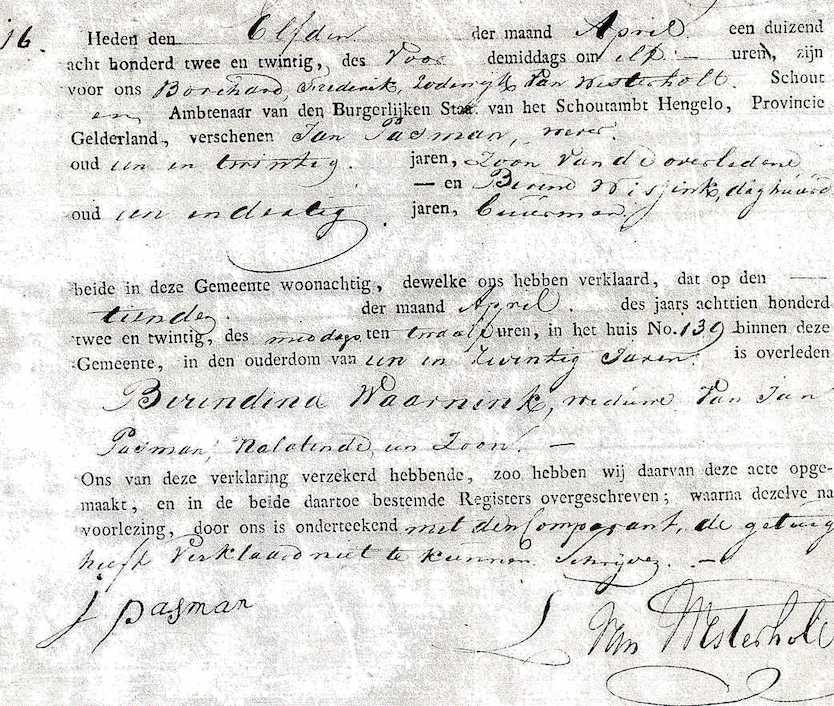 16.
Heden den Elfden der maand April een duizend
acht honderd twee en twintig, des Voor demiddags om elf uren, zijn
voor ons Borchard, Frederik, Lodewijk Van Westerholt. Schout
en Ambtenaar van den Burgerlijken Staat van het Schoutambt Hengelo, Provincie
Gelderland, verschenen Jan Pasman, wever.
oud een en twintig. jaren, Zoon Van de overledene
— en Berend Wisjink, daghuur
oud een en dertig jaren, buurman.
beide in deze Gemeente woonachtig, dewelke ons hebben verklaard, dat op den —
tiende. der maand April. des jaars achttien honderd
twee en twintig, des middags ten twaalf uren, in het huis No. 139 binnen deze
Gemeente, in den ouderdom van een en Zwintig Jaren. is overleden
Berendina Waarnink, weduwe Van Jan
Pasman, Nalatende, een Zoon. —
Ons van deze verklaring verzekerd hebbende, zoo hebben wij daarvan deze acte opge-
maakt, en in de beide daartoe bestemde Registers overgeschreven; waarna dezelve na
voorlezing, door ons is onderteekend met den Comparant, de getuig
heeft Verklaard niet te kunnen Schrijven. —
J Pasman
L Van Westerholt